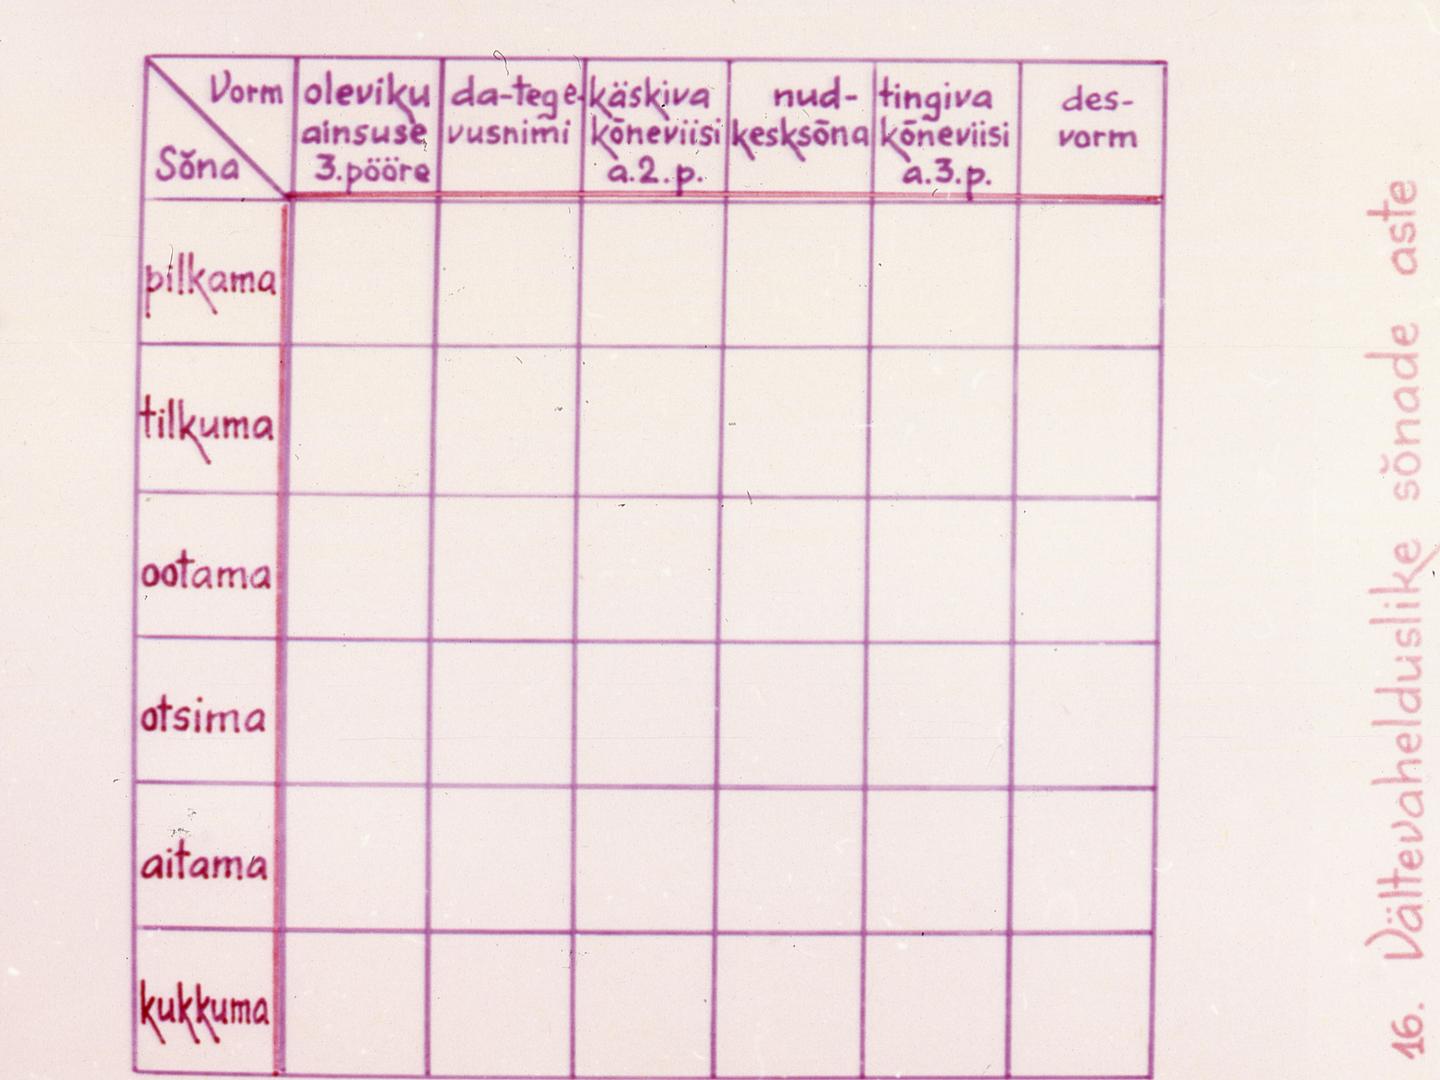 Vorm
Sõna
oleviku
ainsuse
3. pööre
da-tege-
vusnimi
käskiva
kõneviisi
a. 2. p.
nud-
kesksõna
tingiva
kõneviisi
a. 3. p.
des-
vorm
pilkama
tilkuma
ootama
otsima
aitama
kukkuma
16. Vältevahelduslike sõnade aste